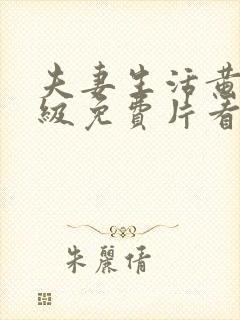 夫妻生活黄
级免費片看
朱麗倩